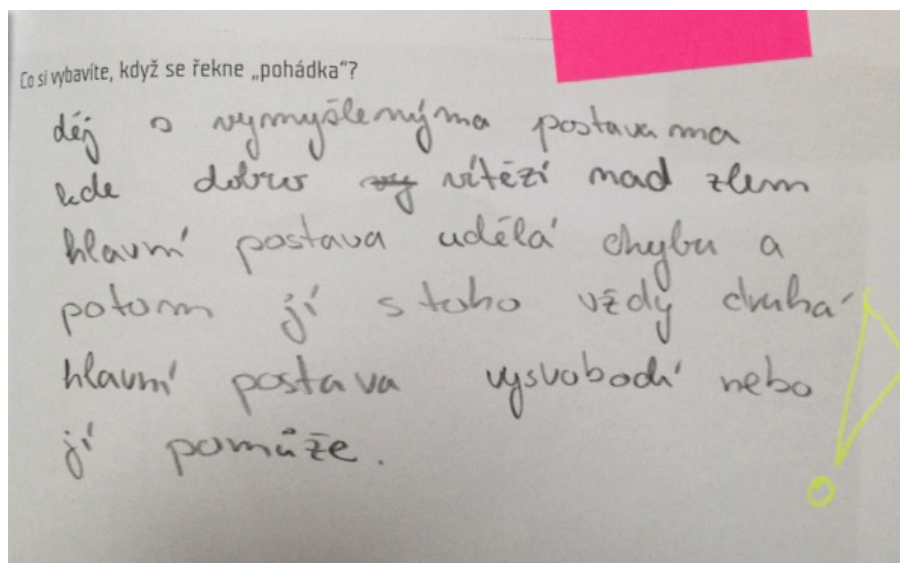 Co si vybavíte, když se řekne „pohádka“?
děj s vymyšlenýma postavama
kde dobro vítězí nad zlem
hlavní postava udělá chybu a
potom jí s toho vždy druhá
hlavní postava vysvobodí nebo
jí pomůže.